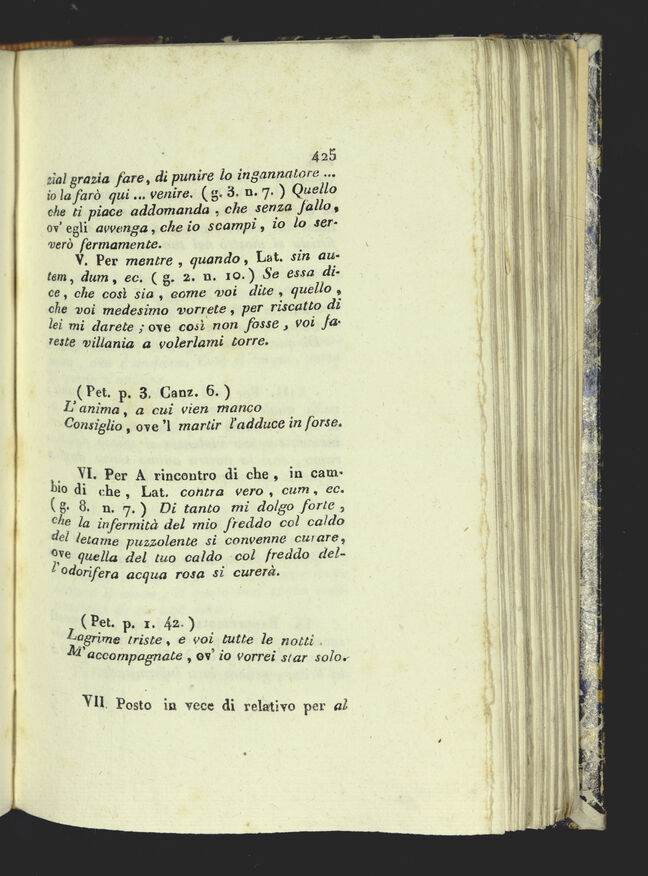 425
zial grazia fare, di punire lo ingannatore ...
io la farò qui ... venire. (g. 3. n. 7.) Quello
che ti piace addomanda, che senza fallo,
ov' egli avvenga, che io scampi, io lo ser-
verò fermamente.
V. Per mentre, quando, Lat. sin au-
tem, dum, ec. (g. 2. n. 10.) Se essa di-
ce, che così sia, come voi dite, quello,
che voi medesimo vorrete, per riscatto di
lei mi darete; ove così non fosse, voi fa-
reste villania a volerlami torre.
(Pet. p. 3. Canz. 6.)
L'anima, a cui vien manco
Consiglio, ove 'l martir l'adduce in forse.
VI. Per A rincontro di che, in cam-
bio di che, Lat. contra vero, cum, ec.
(g. 8. n. 7.) Di tanto mi dolgo forte,
che la infermità del mio freddo col caldo
del letame puzzolente si convenne curare,
ove quella del tuo caldo col freddo del-
l'odorifera acqua rosa si curerà.
(Pet. p. 1. 42.)
Lagrime triste, e voi tutte le notti
M'accompagnate, ov' io vorrei star solo.
VII. Posto in vece di relativo per al